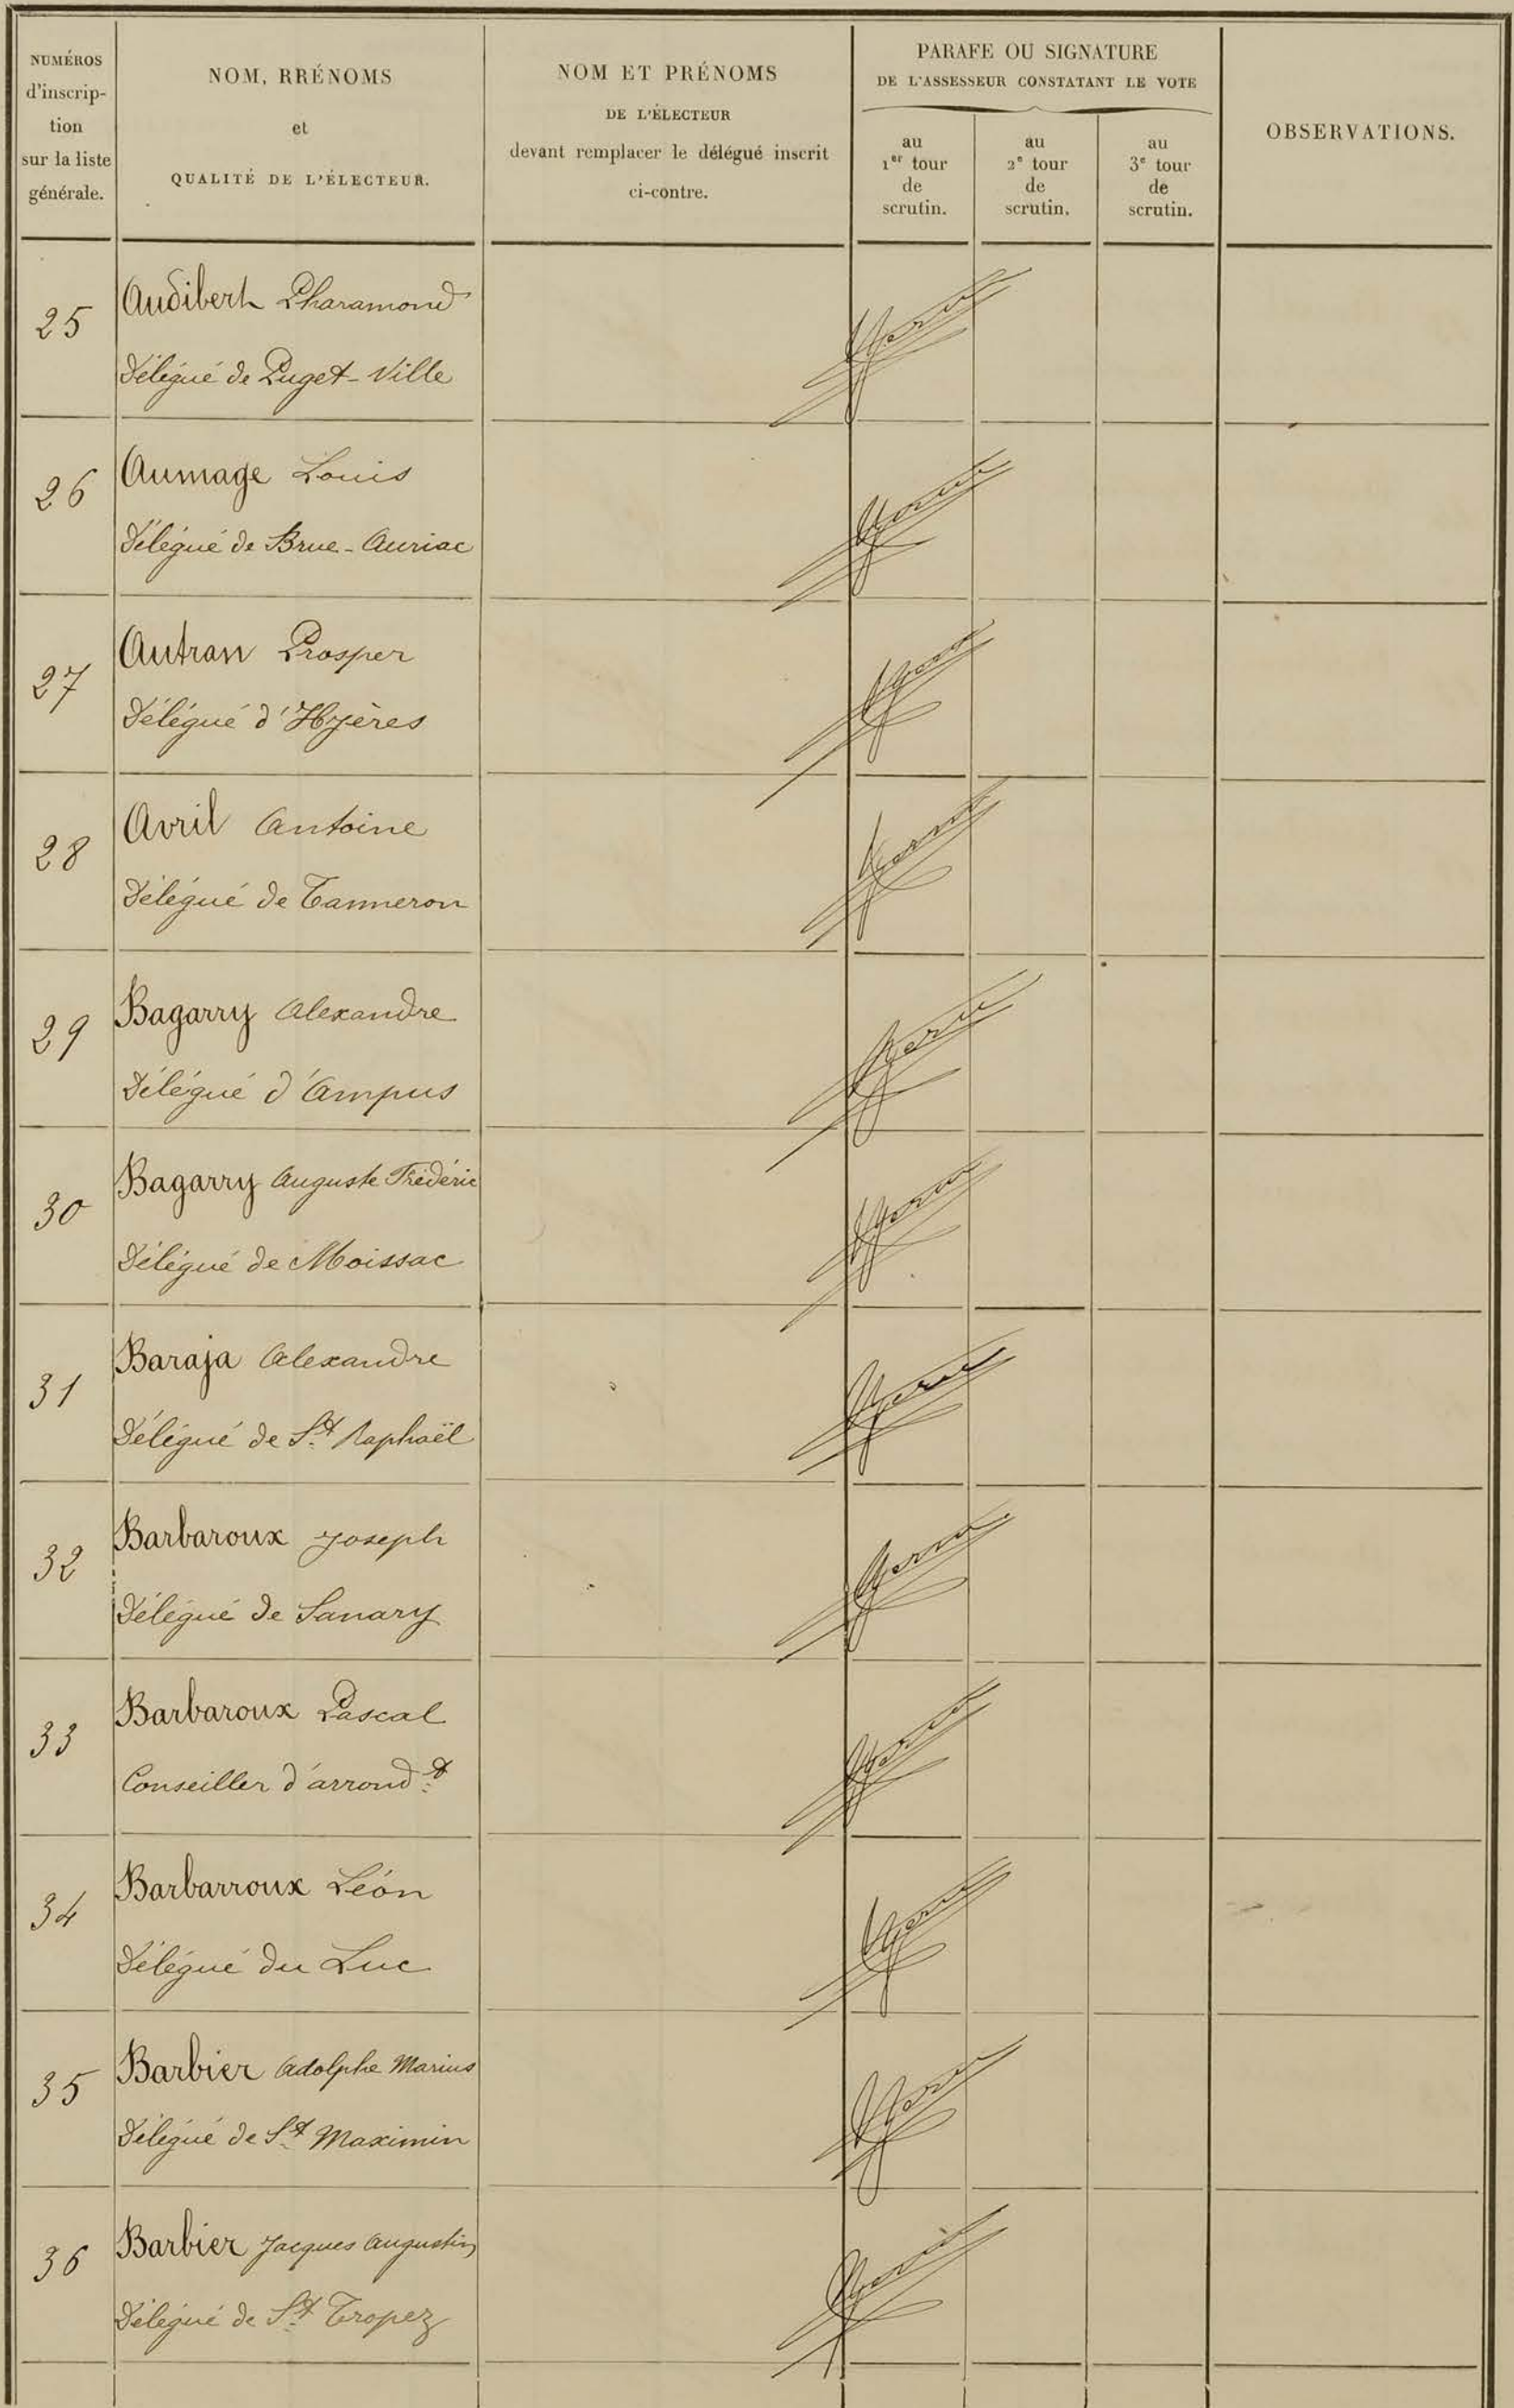 NUMÉROS
d'inscrip-
tion
sur la liste
générale.
NOM, RRÉNOMS
et
QUALITÉ DE L'ÉLECTEUR.
NOM ET PRÉNOMS
DE L'ÉLECTEUR
devant remplacer le délégué inscrit
ci-contre.
PARAFE OU SIGNATURE
DE L'ASSESSEUR CONSTATANT LE VOTE
au
1er tour
de
scrutin.
au
2e tour
de
scrutin.
au
3e tour
de
scrutin.
OBSERVATIONS.
25
Audibert Pharamond
Délégué de Puget-Ville
26
Aumage Louis
Délégué de Brue-Auriac
27
Autran Prosper
Délégué d'Hyères
28
Avril Antoine
Délégué de Tanneron
29
Bagarry Alexandre
Délégué d'Ampus
30
Bagarry Auguste Frédéric
Délégué de Moissac
31
Baraja Alexandre
Délégué de St Raphaël
32
Barbaroux Joseph
Délégué de Sanary
33
Barbaroux Pascal
Conseiller d'arrondt
34
Barbarroux Léon
Délégué du Luc
35
Barbier Adolphe Marius
Délégué de St Maximin
36
Barbier Jacques Augustin
Délégué de St Tropez